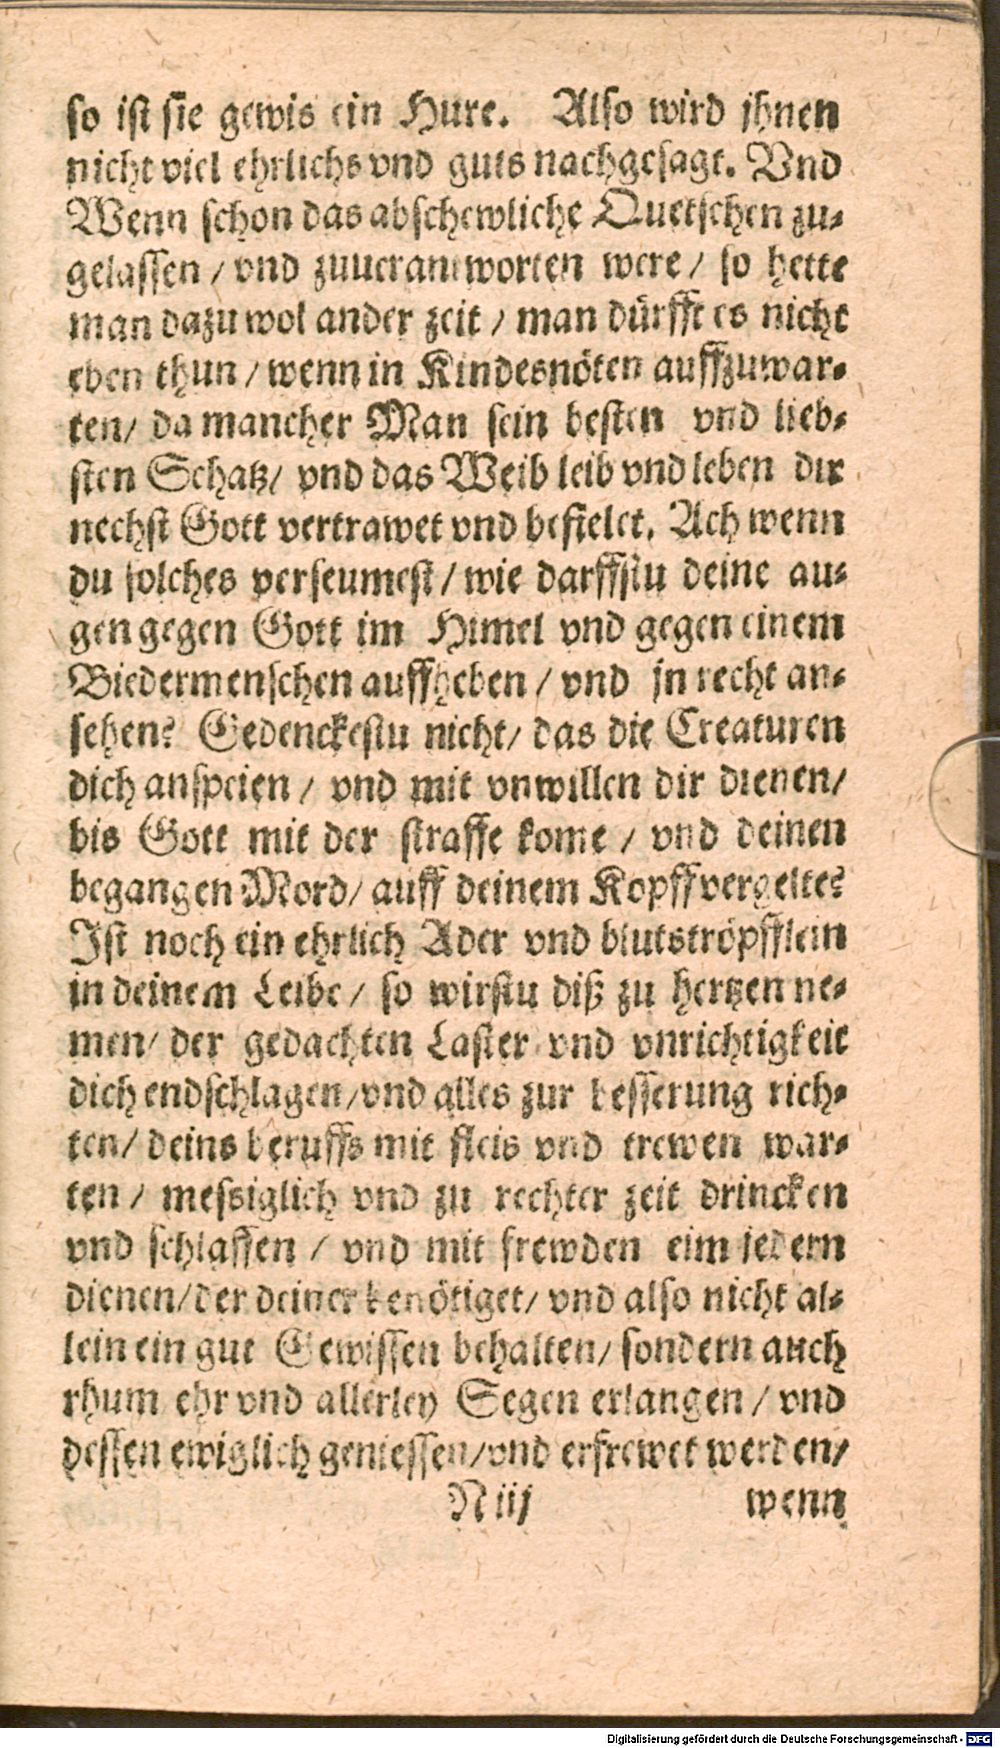 so ist sie gewis ein Hure. Also wird jhnen
nicht viel ehrlichs vnd guts nachgesagt. Vnd
Wenn schon das abschewliche Quetschen zu-
gelassen / vnd zuuerantworten were / so hette
man dazu wol ander zeit / man dürfft es nicht
eben thun / wenn in Kindesnöten auffzuwar-
ten / da mancher Man sein besten vnd lieb-
sten Schatz / vnd das Weib leib vnd leben dir
nechst Gott vertrawet vnd befielet. Ach wenn
du solches verseumest / wie darffstu deine au-
gen gegen Gott im Himel vnd gegen einem
Biedermenschen auffheben / vnd jn recht an-
sehen? Gedenckestu nicht / das die Creaturen
dich anspeien / vnd mit vnwillen dir dienen /
bis Gott mit der straffe kome / vnd deinen
begangen Mord / auff deinem Kopff vergelte?
Ist noch ein ehrlich Ader vnd blutströpfflein
in deinem Leibe / so wirstu diß zu hertzen ne-
men / der gedachten Laster vnd vnrichtigkeit
dich endschlagen / vnd alles zur besserung rich-
ten / deins beruffs mit fleis vnd trewen war-
ten / messiglich vnd zu rechter zeit drincken
vnd schlaffen / vnd mit frewden eim jedern
dienen / der deiner benötiget / vnd also nicht al-
lein ein gut Gewissen behalten / sondern auch
rhum ehr vnd allerley Segen erlangen / vnd
dessen ewiglich geniessen / vnd erfrewet werden /
N iij wenn
Digitalisierung gefördert durch die Deutsche Forschungsgemeinschaft - DFG